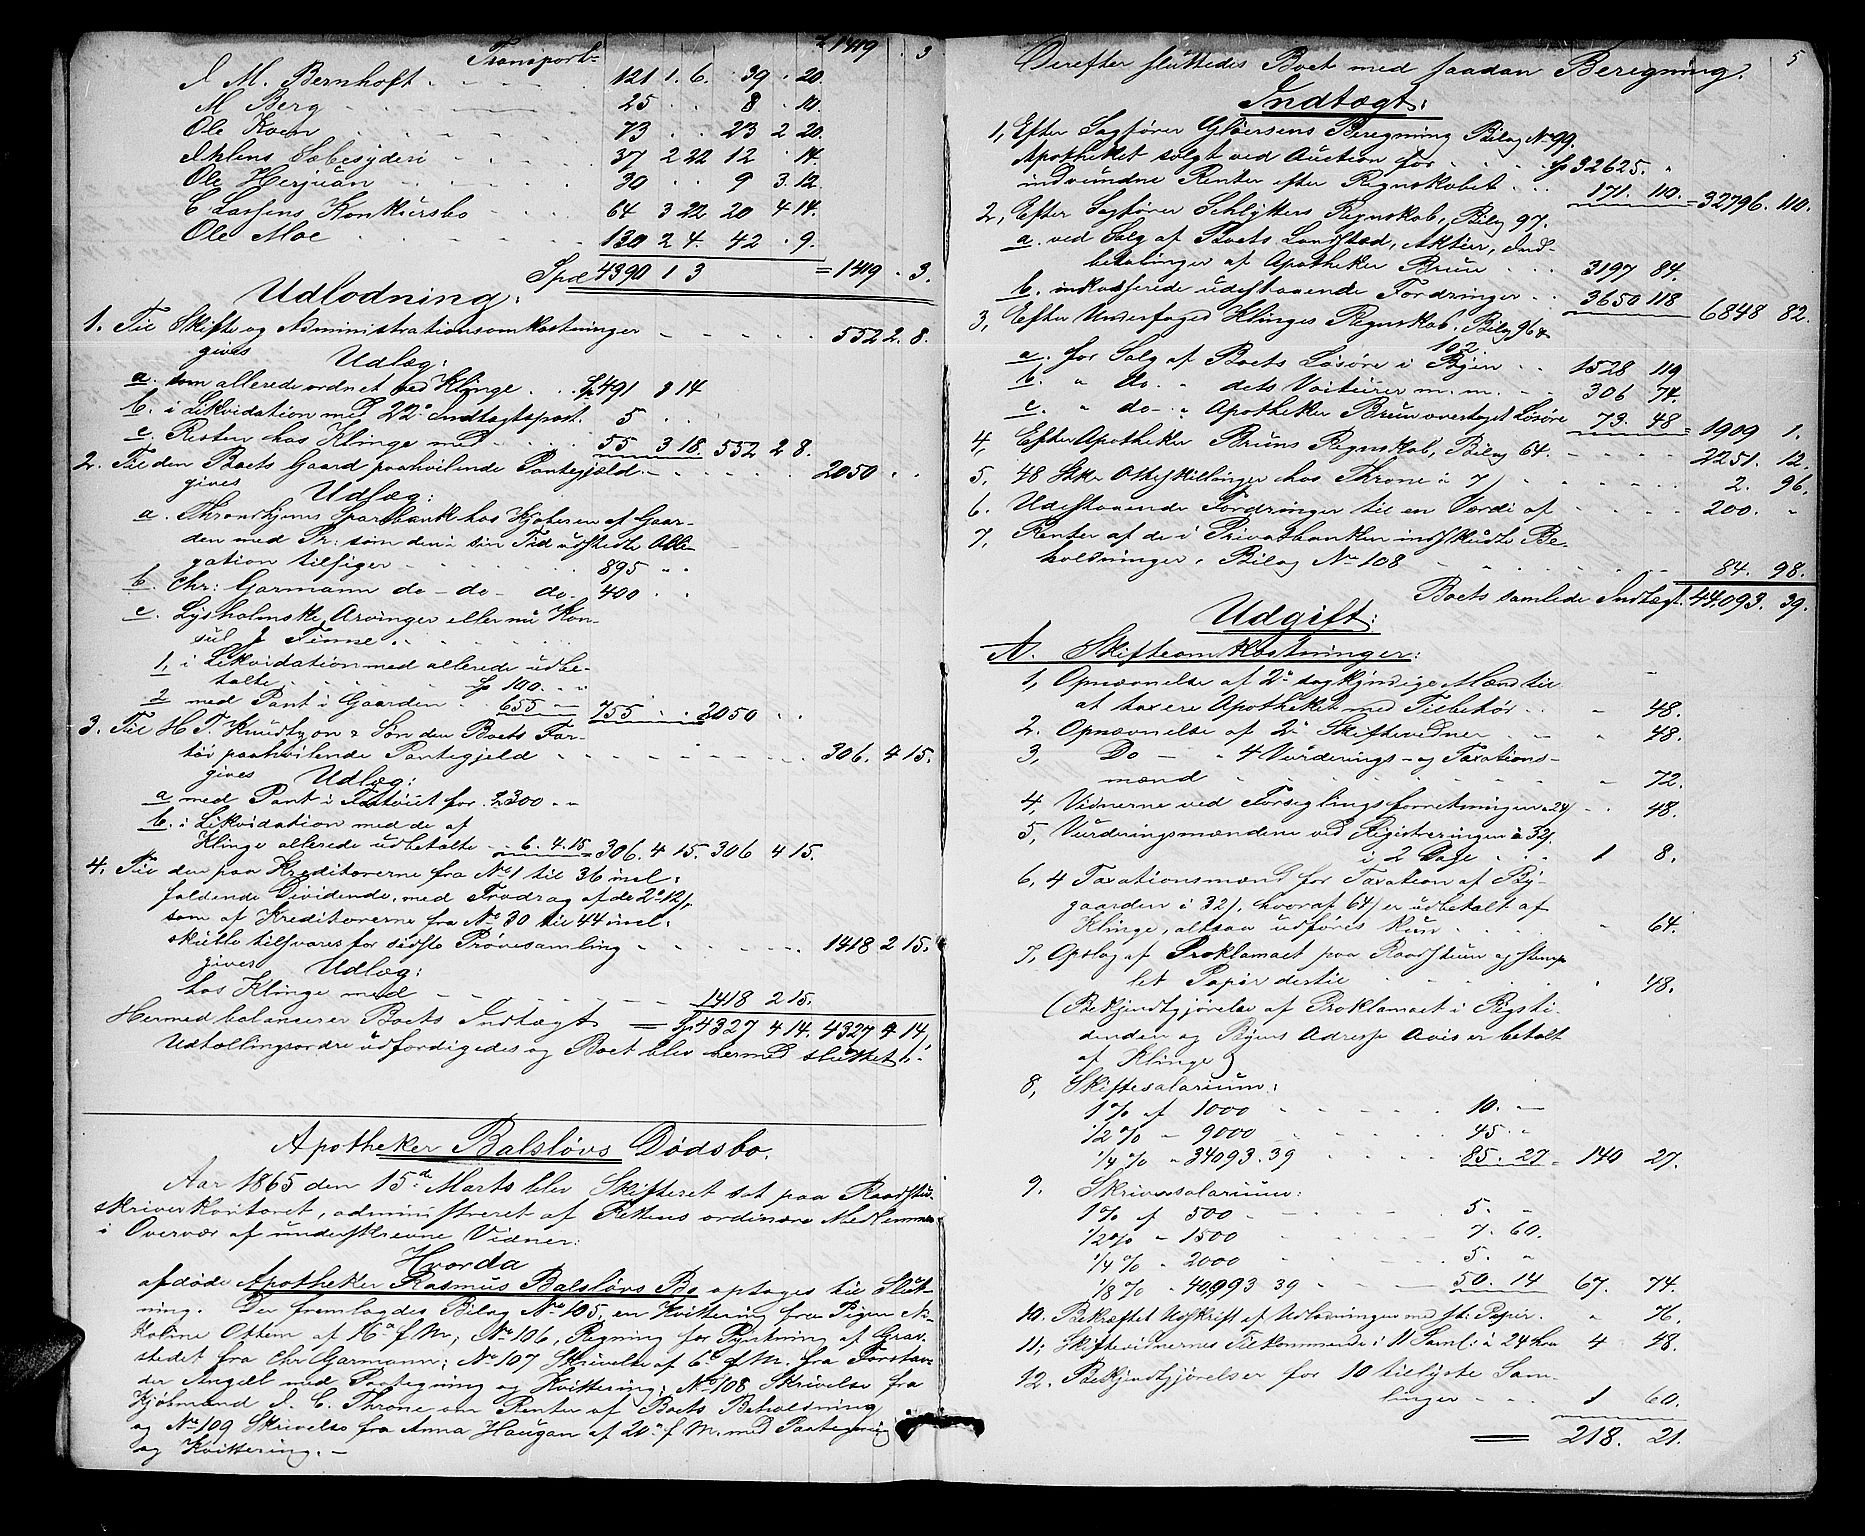 Transport 1419 . 3
I M. Bernhoft . . . 121 1. 6. 39 . 20.
M Berg . . . 25 . . 8 . 10.
Ole Koen . . . 73 . . 23 2 20.
Ihlens Sæbesyderi . . . 37 2 22 12 . 14.
Ole Herjuan . . . 30 . . 9 3. 12.
C Lassens Konkursbo . . . 64 3 22 20 4 14.
Ole Moe . . . 130 2 4. 42 . 9.
Spd 4390 1 3 = 1419 . 3.
Udlodning:
1. Til Skifte og Administrationsomkostninger . . . 552 2. 8.
gives Udlæg:
a. som allerede ordnet ved Klinge . . 491 3 14
b. i Likvidation med 22de Indtægtspost. 5 . .
c. Resten hos Klinge med . . . 55 3 18. 552 2 8.
2. Til den Boets Gaard paahvilende Pantegjæld . . . 2050 . .
gives Udlæg:
a. Throndhjems Sparebank hos Kjøberen af Gaar-
den med Pr: som den i sin Tid udstedte Obli-
gation tilsiger . . . 895 . .
b. Chr: Garmann do - do - do - 400 . .
c. Lysholmske Arvinger eller nu Kon-
sul J Finne . . .
1, i Likvidation med allerede udbe-
talte . . . 100. . .
2 med Pant i Gaarden . . 655 — 755 . . 2050 . .
3. Til H T. Knudtzon & Søn den Boets Far-
tøi paahvilende Pantegjeld . . . 306. 4 15.
gives Udlæg:
a med Pant i Fartøiet for 300 . .
b. i Likvidation med de af
Klinge allerede udbetalte . . 6. 4. 15 = 306. 4 15. 306 4 15.
4. Til den paa Kreditorerne fra No 1 til 36 incl:
faldende Dividende, med Fradrag af de 2 12/,
som af Kreditorerne fra No 30 til 44 incl:
skulle tilsvares for sidste Prøvesamling . . . 1418 2 15.
gives Udlæg:
hos Klinge med . . . 1418 2 15.
Hermed balancerer Boets Indtægt = 4327 4 14. 4327 4 14,
Udtællingsordre udfærdigedes og Boet blev hermed sluttet.
Apotheker Balsløvs Dødsbo.
Aar 1865 den 15de Marts blev Skifteret sat paa Raadstu-
skriverkontoret, administreret af Rettens ordinære Medlemmer
i Overvær af underskrevne Vidner:
Hvorda
afdøde Apotheker Rasmus Balsløvs Bo optoges til Slut-
ning. Der fremlagdes Bilag No 105, en Kvittering fra Pigen N-
koline Ottem af 16de f. M; No 106, Regning for Pyntning af Grav-
stedet fra Chr Garmann; No 107 Skrivelse af 6te f. M. fra Forstan-
der Angell med Paategning og Kvittering; No 108 Skrivelse fra
Kjøbmand J. C. Throne om Renter af Boets Beholdning
og No 109 Skrivelse fra Anna Haugan af 20de f M. med Paategning
og Kvittering. —
5
Derefter sluttedes Boet med saadan Beregning.
Indtægt:
1, Efter Sagfører Gløersens Beregning Bilag No 99.
Apotheket solgt ved Auction for . . . 32625. "
indvundne Renter efter Regnskabet . . 171. 110. = 32796. 110.
2, Efter Sagfører Schlytters Regnskab, Bilag 97.
a. ved Salg af Boets Landsted, Aktier, Ind-
betalinger af Apotheker Bruun . . . 3197 84.
b. inkasserede udestaaende Fordringer . . 3650 118 6848 82.
3, Efter Underfoged Klinges Regnskab. Bilag 96 &
102.
a. for Salg af Boets Løsøre i Byen . . 1528 119
b. " do. " dets Voiturer m. m. . . 306 74.
c. " do - " Apotheker Bruun overtaget Løsøre 73. 48 = 1909 1.
4, Efter Apotheker Bruns Regnskab, Bilag 64. . . . 2251. 12.
5, 48 Stkr Otteskillinger hos Throne i 7/ . . . 2. 96.
6. Udestaaende Fordringer til en Værdi af . . . 200. "
7, Renter af de i Privatbanken indskudte Be-
holdninger, Bilag No 108 . . . 84. 98.
Boets samlede Indtægt. 44,093. 39.
Udgift:
A. Skifteomkostninger:
1, Opnævnelse af 2de sagkyndige Mænd til
at taxere Apotheket med Tilbehør . . — 48.
2. Opnævnelse af 2de Skiftevidner . . . 48.
3, Do — " 4 Vurderings- og Taxations-
mænd . . . " 72.
4, Vidnerne ved Forseglingsforretningen a 24/ . . 48.
5, Vurderingsmændene ved Registreringen à 32/.
i 2 Dage . . . 1 8.
6, 4 Taxationsmænd for Taxation af By-
gaarden i 32/, hvoraf 64/ er udbetalt af
Klinge, altsaa udføres kun . . . " 64.
7, Opslag af Proklamaet paa Raadstuen og stemp
let Papir dertil . . . 48.
(Bekjendtgjørelse af Proklamaet i Rigsti-
denden og Byens Adresse Avis er betalt
af Klinge)
8, Skiftesalarium:
1 % af 1000 . . . 10. —
1/2 % " 9000 . . . 45. "
1/4 % " 34093. 39 . . . 85. 27 = 140 27.
9. Skriversalarium:
1 % af 500 . . . 5. "
1/2 % " 1500 7. 60.
1/4 % " 2000 5. "
1/8 % " 40,093 39 . . . 50. 14 67. 74.
10. Bekræftet Udskrift af Udlodningen med st: Papir. " 76.
11, Skiftevidnernes Tilkommende i 11 Saml: à 24 hver 4 48.
12. Bekjendtgjørelser for 10 tillyste Sam-
linger . . . 1 60.
= 218. 21.